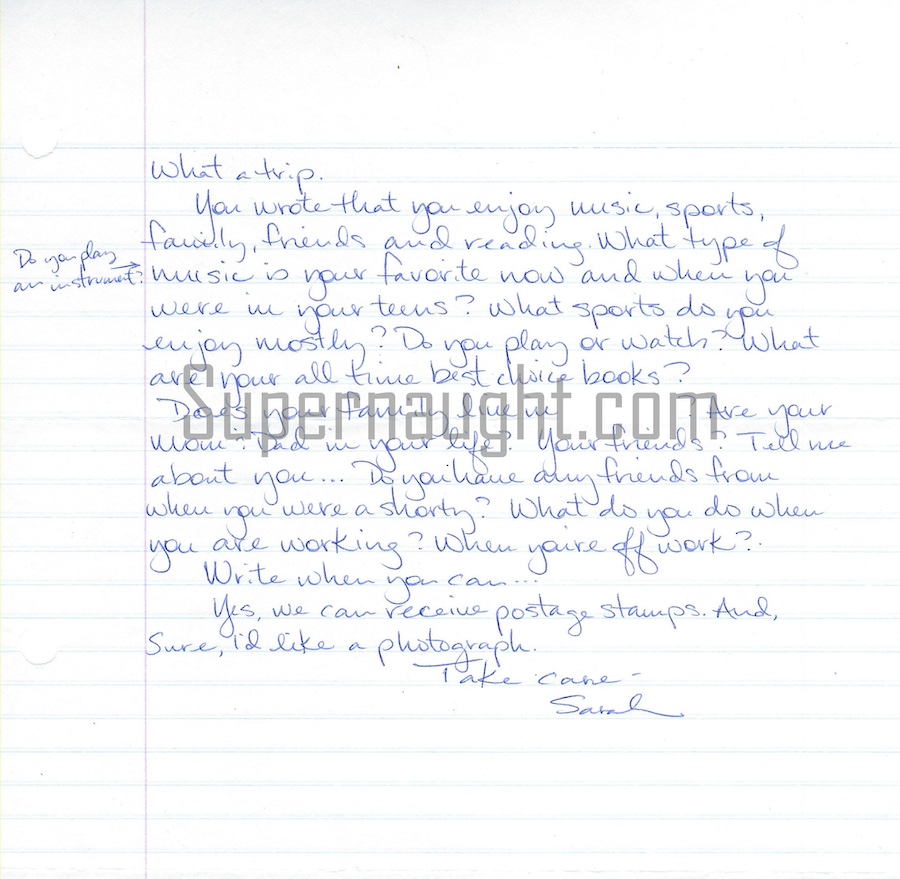 What a trip.
You wrote that you enjoy music, sports,
family, friends and reading. What type of
Do you play
an instrument?
music is your favorite now and when you
were in your teens? What sports do you
enjoy mostly? Do you play or watch? What
are your all time best choice books?
Supernaught.com
Does your family live in ? Are your
mom? Dad in your life? Your friends? Tell me
about you... Do you have any friends from
when you were a shorty? What do you do when
you are working? When you're off work?
Write when you can...
Yes, we can receive postage stamps. And,
Sure, i'd like a photograph.
Take care -
Sarah